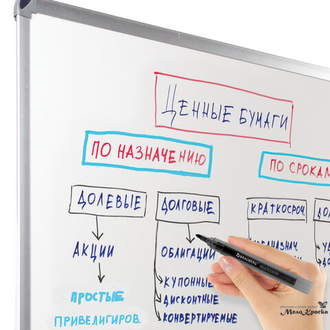 ЦЕННЫЕ БУМАГИ
ПО НАЗНАЧЕНИЮ
ПО СРОКАМ
ДОЛЕВЫЕ
ДОЛГОВЫЕ
КРАТКОСРОЧ.
АКЦИИ
ОБЛИГАЦИИ
ПРОСТЫЕ
ПРИВЕЛИГИРОВ
КУПОННЫЕ
ДИСКОНТНЫЕ
КОНВЕРТИРУЕМЫЕ
BRAUBERG
МелоКраска